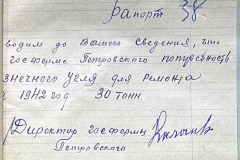 рапорт 38
водим до Вашого Сведения, что
госферме Петровского потребность
знечного Угля для ремонта
1942 год 30 тонн.
Директор госфермы
Петровского